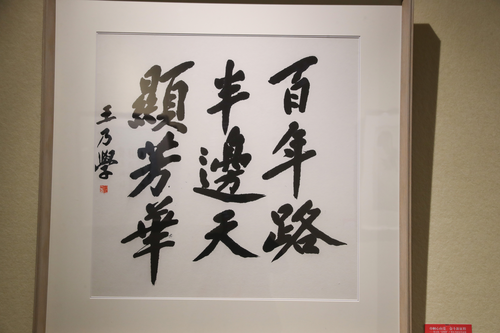 百年路
半邊天
顯芳華
王乃學